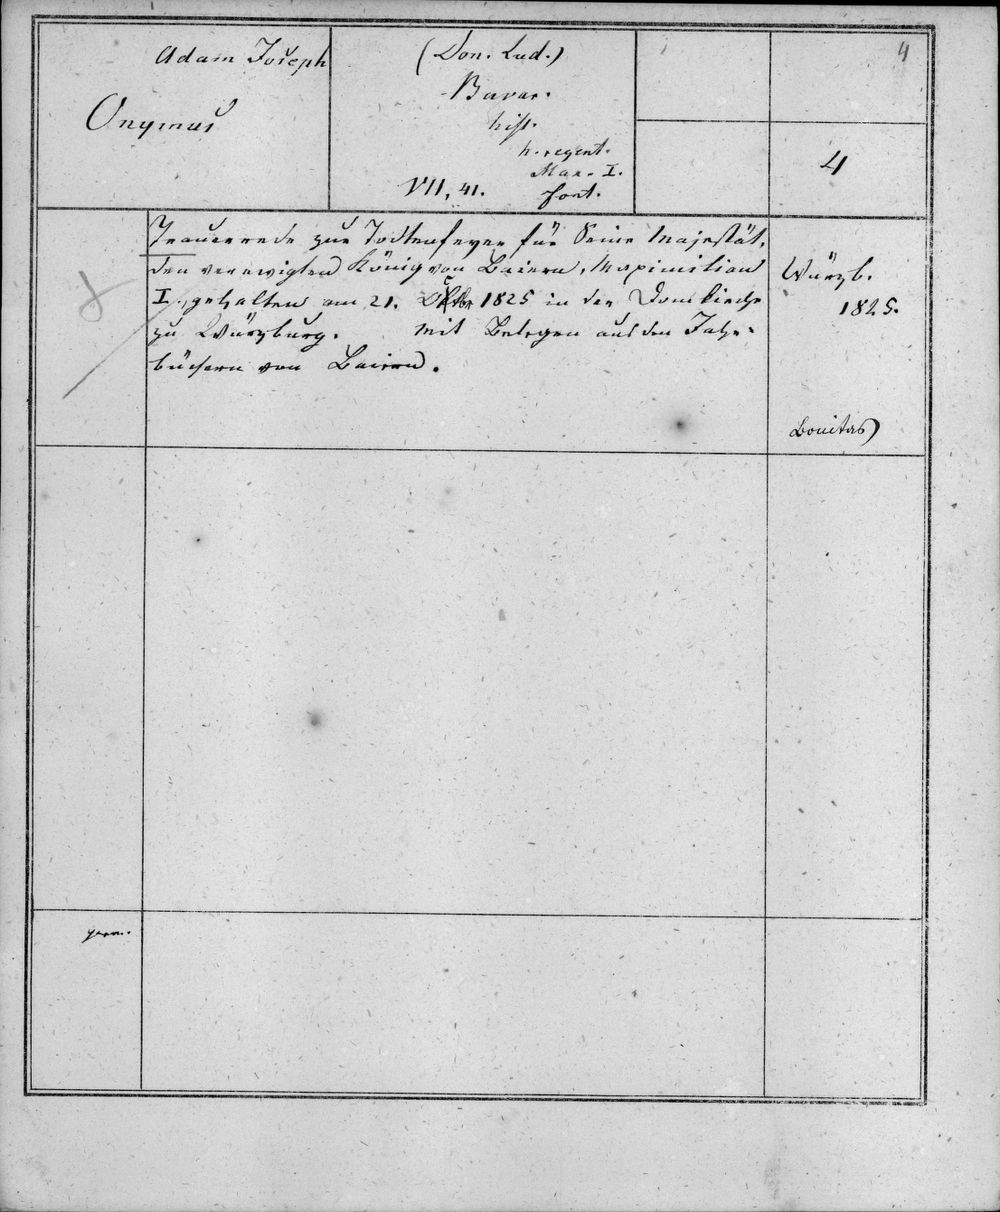 Adam Joseph
Onymus
(Don. Lud.)
Bavar.
hist.
h. regent.
Max. I.
VII, 41. font.
4
4
Trauerrede zur Todtenfeyer für Seine Majestät,
den verewigten König von Baiern, Maximilian
I., gehalten am 21. Oktbr 1825 in der Domkirche
zu Würzburg. Mit Belegen aus den Jahr-
büchern von Baiern.
Würzb.
1825.
Bonitas)
8
germ.